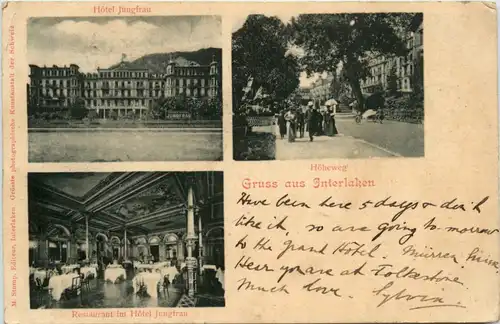 Hôtel Jungfrau
Höheweg
Gruss aus Interlaken
Restaurant im Hôtel Jungfrau
Editeur, Interlaken. Grösste photographische Kunstanstalt der Schweiz.
Have been here 5 days & don't
like it, so are going to-morrow
to the Grand Hôtel. Mürren
Hear you are at Folkestone
Much love. Sylvia.